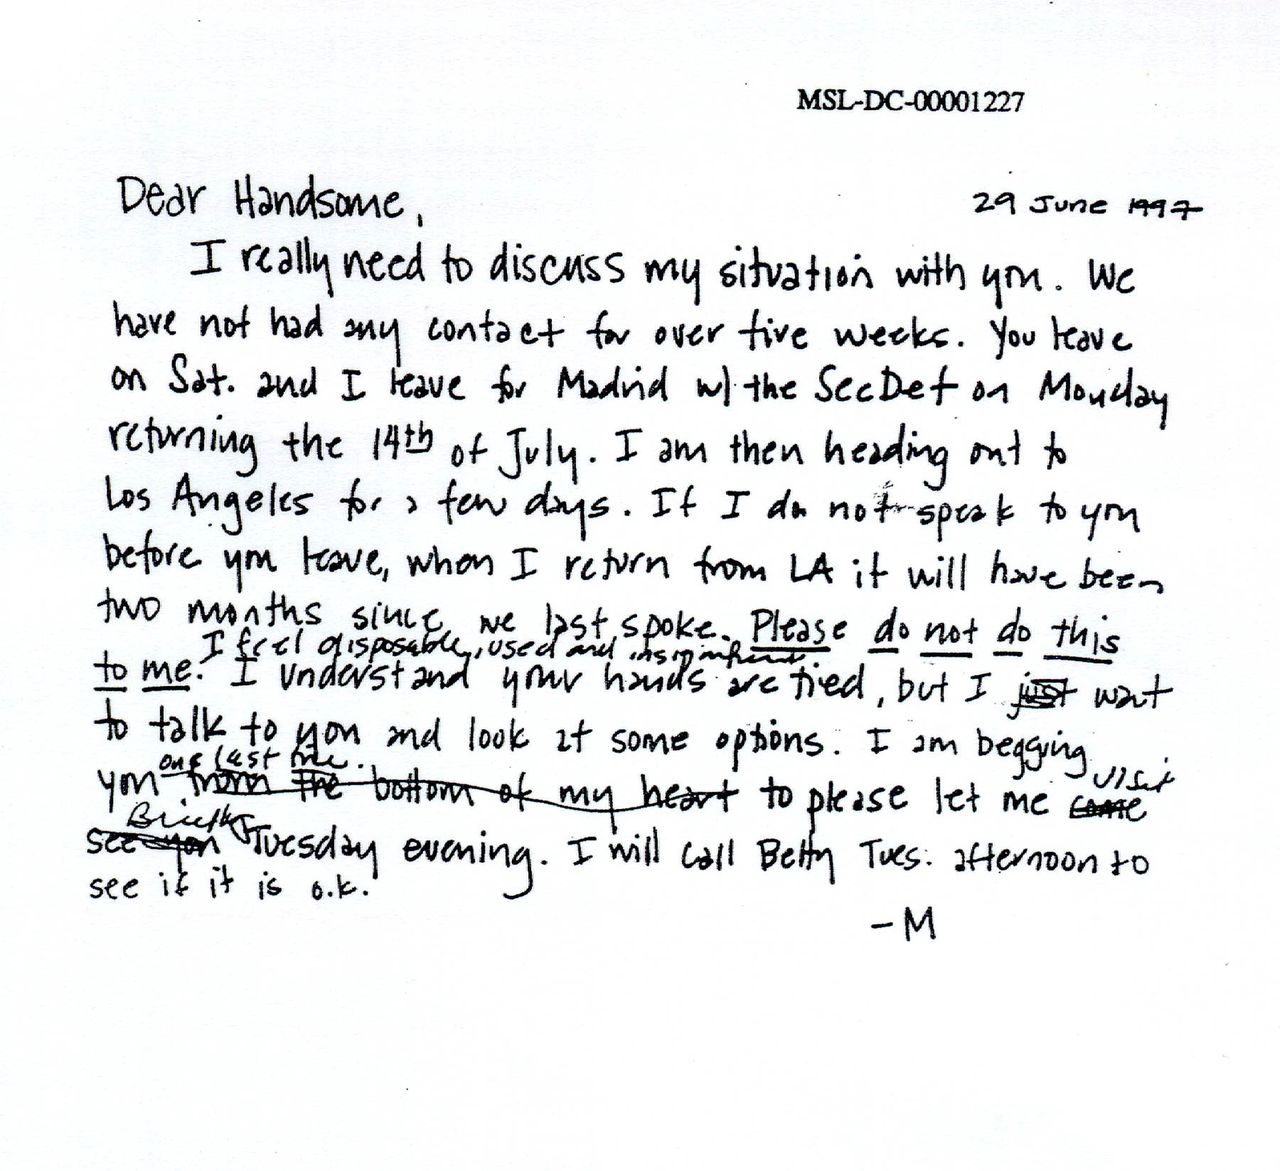 MSL-DC-00001227
Dear Handsome,
29 June 1997
I really need to discuss my situation with you. We
have not had any contact for over five weeks. You leave
on Sat. and I leave for Madrid w/ the SecDef on Monday
returning the 14th of July. I am then heading out to
Los Angeles for a few days. If I do not speak to you
before you leave, when I return from LA it will have been
two months since we last spoke. Please do not do this
I feel disposable, used and insignificant.
to me. I understand your hands are tied, but I just want
to talk to you and look at some options. I am begging
one last time.
you from the bottom of my heart to please let me come
visit
Briefly
see you Tuesday evening. I will call Betty Tues. afternoon to
see if it is o.k.
-M